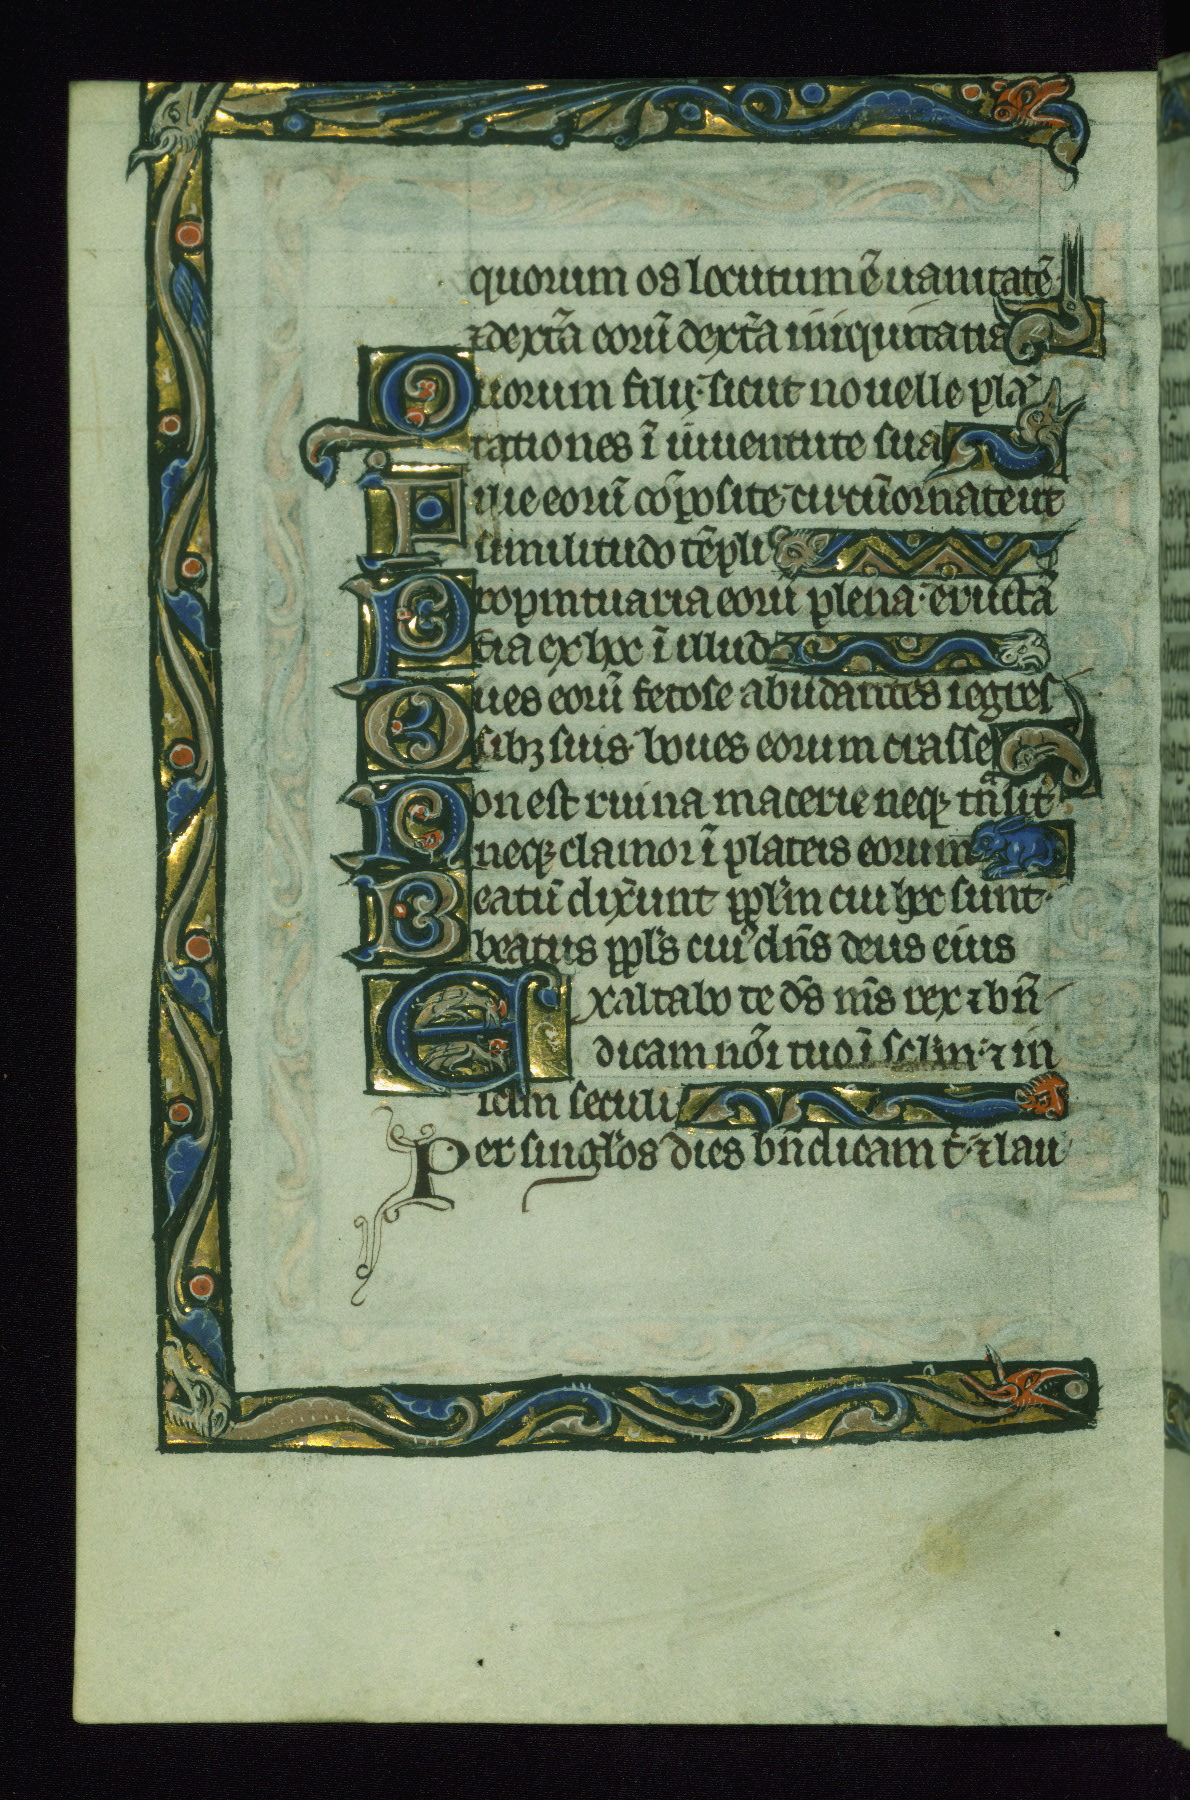 quorum os locutum ē uanitatē
⁊ dext̃a eorū dext̃a iniquitatis
Quorum filij sicut nouelle plā
tationes ī iuuentute sua
Filie eorū cōposite circūornate ut
similitudo tēpli
Promptuaria eorū plena eructā
tia ex hoc ī illud
Oues eorū fetose abūdantes ī egres
sibꝫ suis boues eorum crasse
Non est ruina macerie neqꝫ trāsit
neqꝫ clamor ī plateis eorum
Beatū dix̃unt pplm̄ cui hec sunt
beatus ppl̄s cui' dn̄s deus eius
Exaltabo te ds̄ ms̄ rex ⁊ bn̄
dicam nōi tuo ī sclm̄ ⁊ in
sclm̄ seculi
Per singlos dies bn̄dicam t̄ ⁊ lau